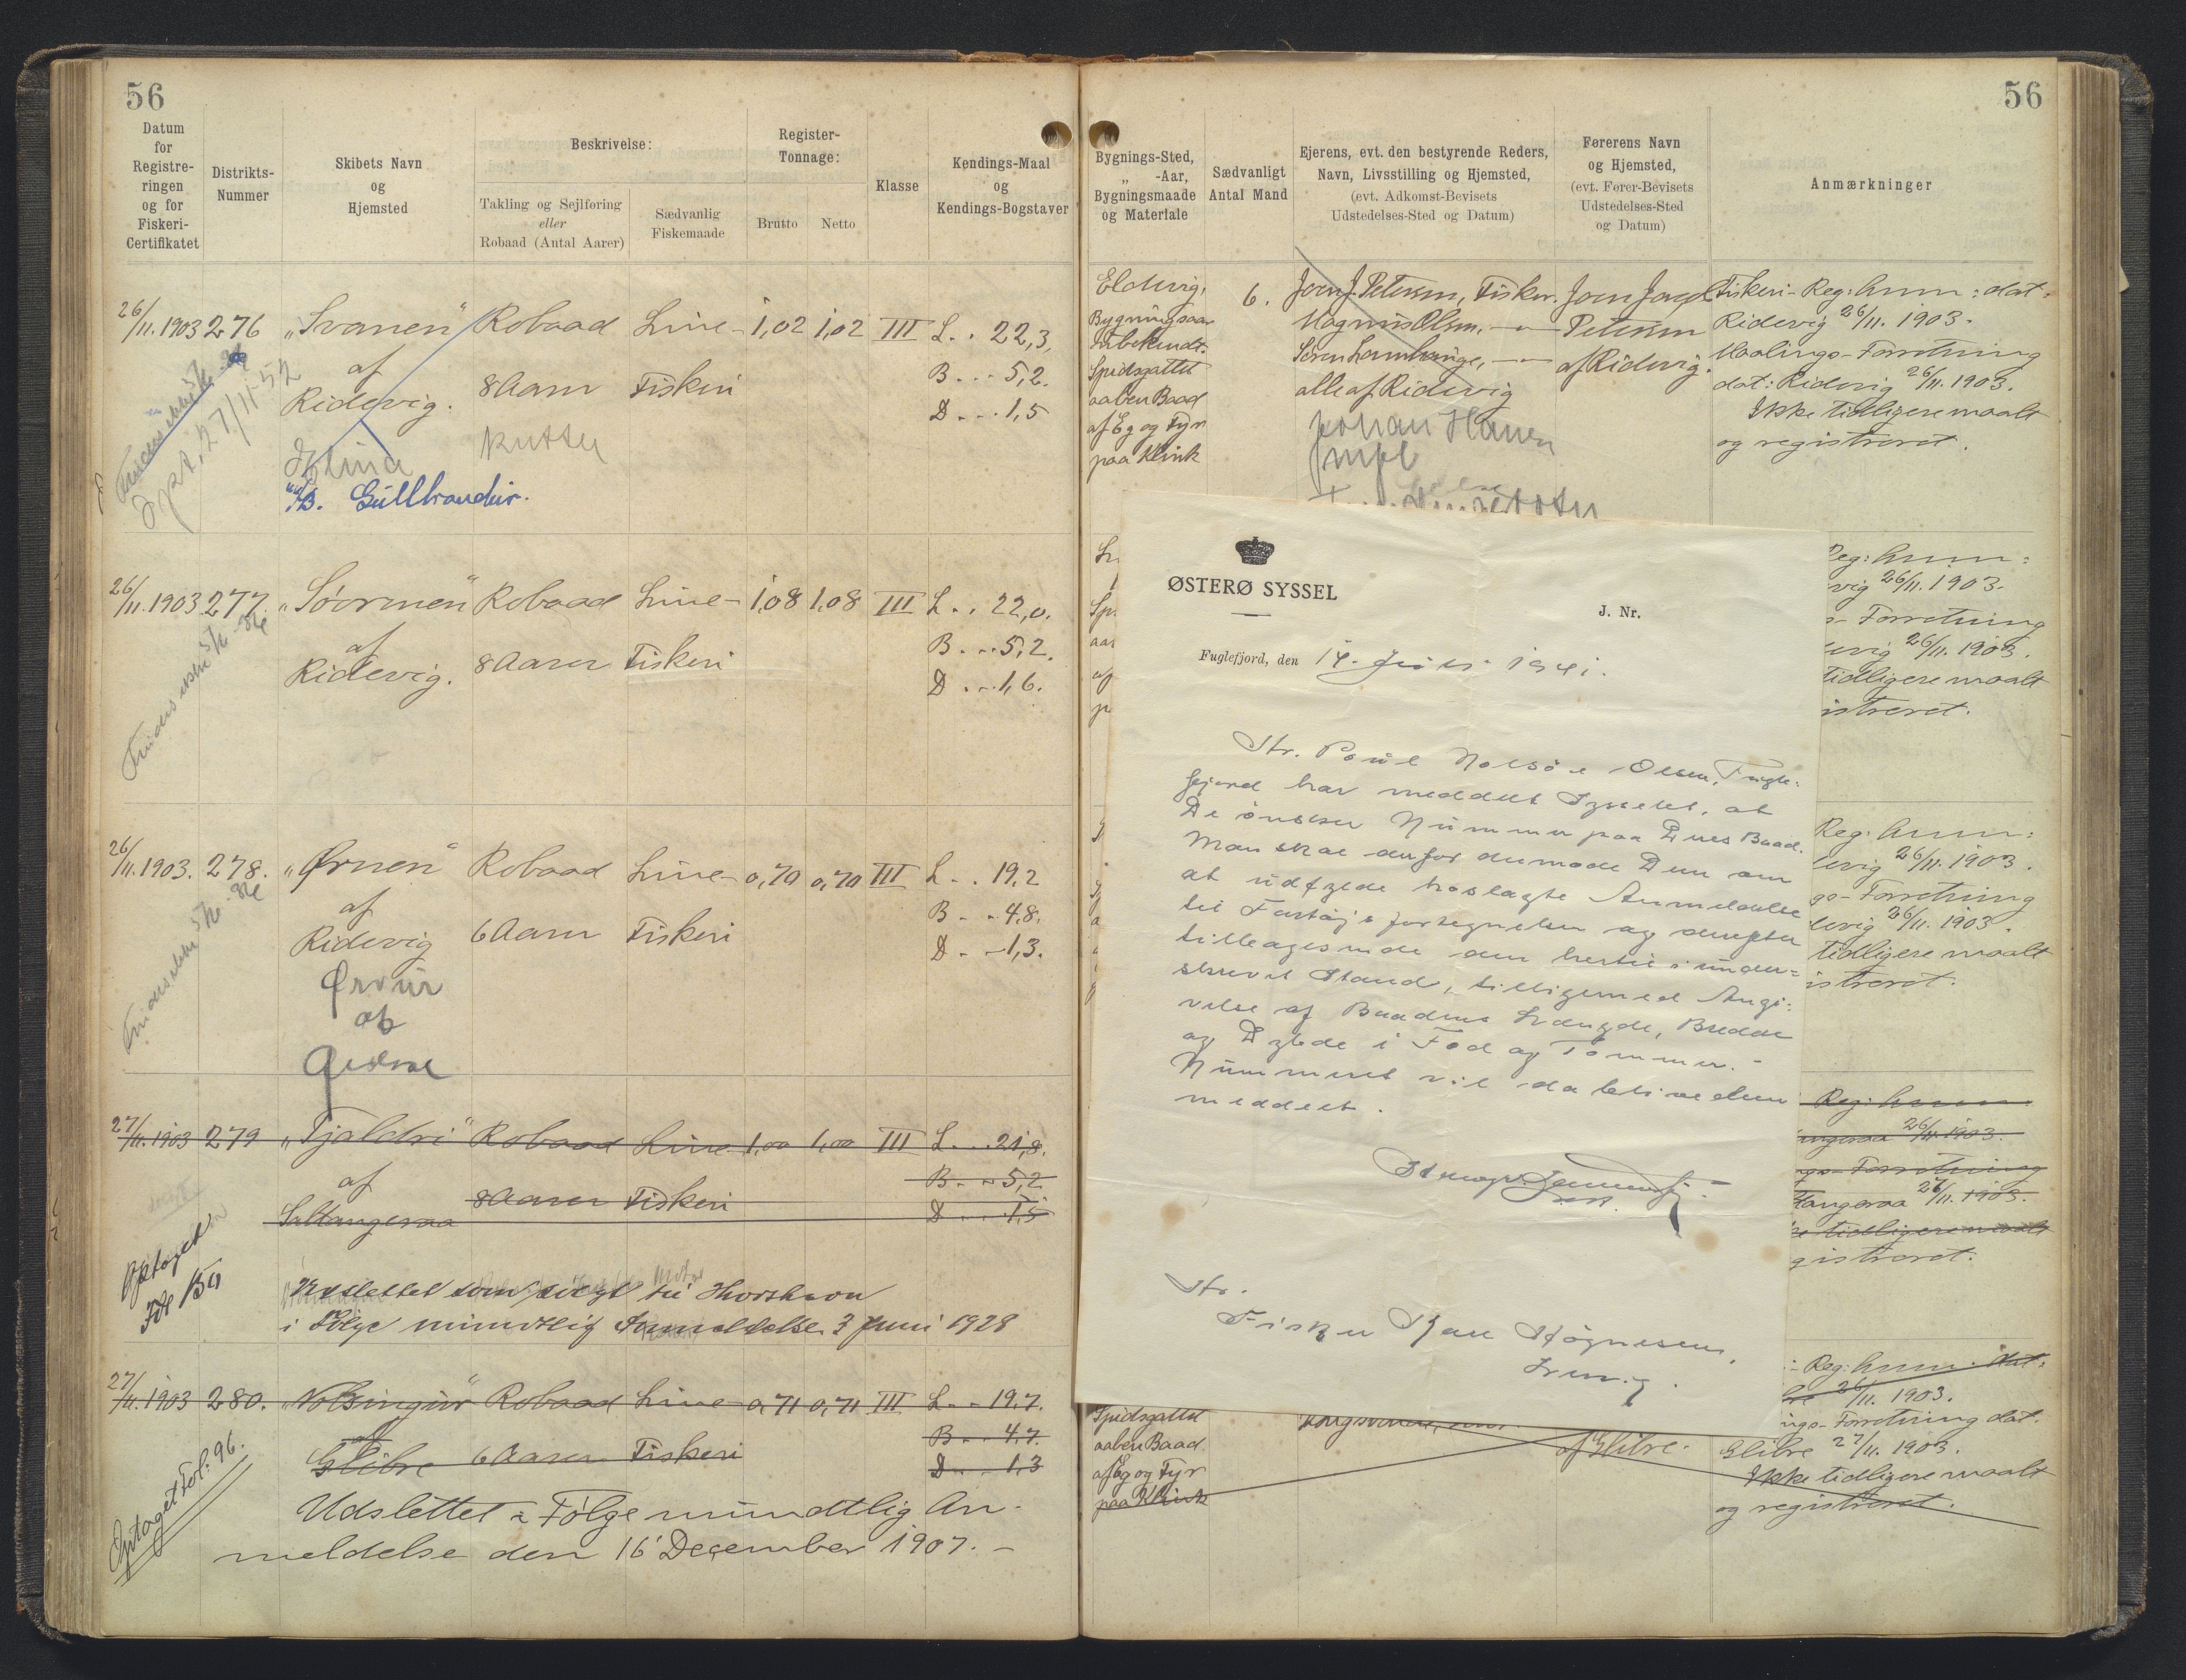 56
Datum
for
Registre-
ringen
og for
Fiskeri-
Certifikatet
Distrikts-
Nummer
Skibets Navn
og
Hjemsted
Beskrivelse:
Takling og Sejlføring
eller
Robaad (Antal Aarer)
Sædvanlig
Fiskemaade
Register-
Tonnage:
Brutto
Netto
Klasse
Kendings-Maal
og
Kendings-Bogstaver
26/11. 1903 276 „Svanen" Robaad Line- 1,02 1,02 III L . . 22,3,
af 8 Aarer Fiskeri B . . . 5,2.
Ridevig. D . . . 1,5
Kutter
27/11 52
M/B. Gullbrandur.
26/11. 1903 277. Robaad Line- 1,08 1,08 III L . . 22,0.
af 8 Aarer Fiskeri B . . . 5,2.
Ridevig. D . . . 1,6.
Findes ikke
26/11. 1903. 278. „Ørnen" Robaad Line- 0,70 0,70 III L . . 19,2
af B . . 4,8.
Ridevig 6 Aarer Fiskeri D . . 1,3.
Findes ikke
Ørvur
27/11. 1903 279 „Tjaldri" Robaad Line- 1,00 1,00 III L . . . 21,8.
af B . . 5,2
Saltangeraa 8 Aarer Fiskeri D . . . 1,5
Optaget
Udslettet som solgt til Thorshavn
i Følge mundtlig Anmeldelse 3 Juni 1928
27/11. 1903 280. „Nolsingur" Robaad Line- 0,71 0,71 III L . . 19,7.
af B . . . 4,7.
Glibre 6 Aarer Fiskeri D . . . 1,3
Optaget Fol: 96.
Udslettet i Følge mundtlig An-
meldelse den 16 December 1907. –
56
Bygnings-Sted,
„ -Aar,
Bygningsmaade
og Materiale
Sædvanligt
Antal Mand
Ejerens, evt. den bestyrende Reders,
Navn, Livsstilling og Hjemsted,
(evt. Adkomst-Bevisets
Udstedelses-Sted og Datum)
Førerens Navn
og Hjemsted,
(evt. Fører-Bevisets
Udstedelses-Sted
og Datum)
Anmærkninger
Eldevig,
Bygningsaar
ubekendt.
Spidsgattet
aaben Baad
af Eg og Fyr
paa Klink
6.
Joen J. Petersen, Fisker.
Magnus Olsen, — „ —
alle af Ridevig
Johan Hansen
Petersen
af Ridevig.
Fiskeri-Reg: Anm: dat.
Ridevig 26/11. 1903.
Maalings-Forretning
dat: Ridevig 26/11. 1903.
Ikke tidligere maalt
og registreret.
ØSTERØ SYSSEL
J. Nr.
Fuglefjord, den 14. Juli 1941.
Hr. Poul Nolsøe Olsen, Fugle-
fjord har meddelt Sysselet, at
De ønsker Nummer paa Deres Baad.
Man skal derfor anmode Dem om
at udfylde hoslagte Anmeldelse
til Fartøjsfortegnelsen og derefter
tilbagesende den hertil i under-
skrevet Stand, tilligemed Angi-
velse af Baadens Længde, Bredde
og Dybde i Fod og Tommer. –
Nummeret vil da blive dem
meddelt.
Hr.
Fisker
Reg: Anm:
vig 26/11. 1903.
- Forretning
evig 26/11. 1903.
tidligere maalt
istreret.
Reg: Anm:
evig 26/11. 1903.
gs-Forretning
levig 26/11. 1903.
tidligere maalt
istreret.
Reg: Anm:
angeraa 26/11. 1903.
ngs-Forretning
tangeraa 27/11. 1903.
ke tidligere maalt
gistreret.
- Reg: Anm: dat:
bre 26/11. 1903.
ings-Forretning dat.
Glibre 27/11. 1903.
Ikke tidligere maalt
og registreret.
Spidsgattet
aaben Baad
af Eg og Fyr
paa Klink
af Glibre.